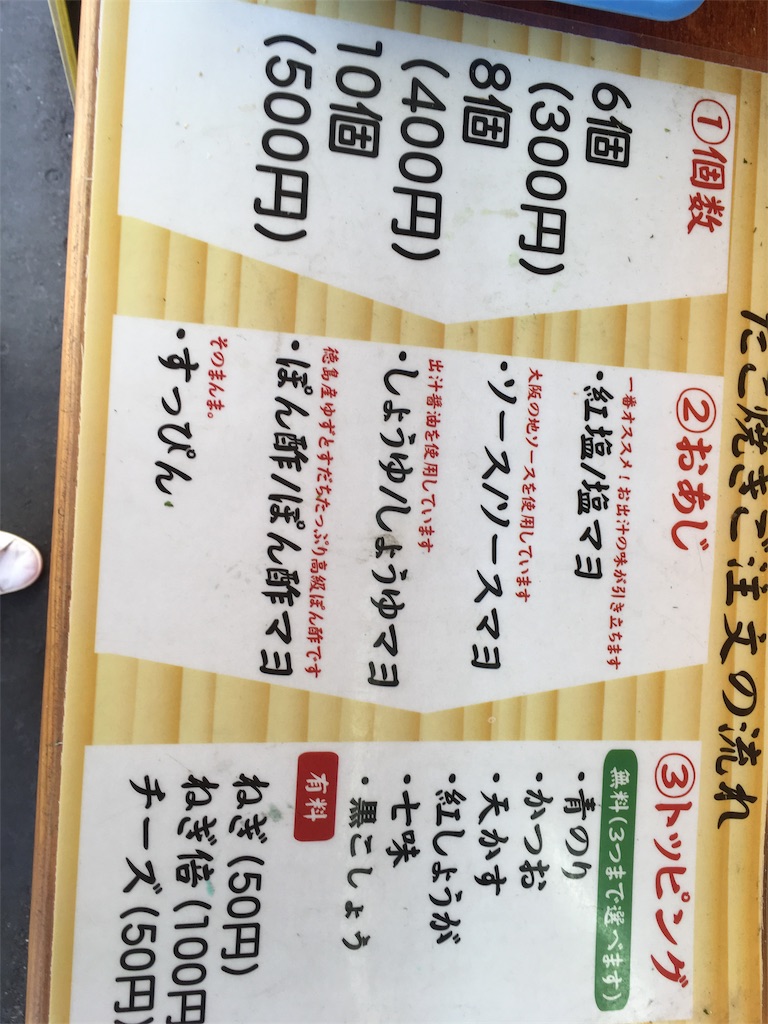 たこ焼きご注文の流れ
①個数
6個
(300円)
8個
(400円)
10個
(500円)
②おあじ
一番オススメ！お出汁の味が引き立ちます
・紅塩/塩マヨ
大阪の地ソースを使用しています
・ソース/ソースマヨ
出汁醤油を使用しています
・しょうゆ/しょうゆマヨ
徳島産ゆずとすだちたっぷり高級ぽん酢です
・ぽん酢/ぽん酢マヨ
そのまんま。
・すっぴん
③トッピング
無料(3つまで選べます)
・青のり
・かつお
・天かす
・紅しょうが
・七味
・黒こしょう
有料
ねぎ(50円)
ねぎ倍(100円
チーズ(50円)